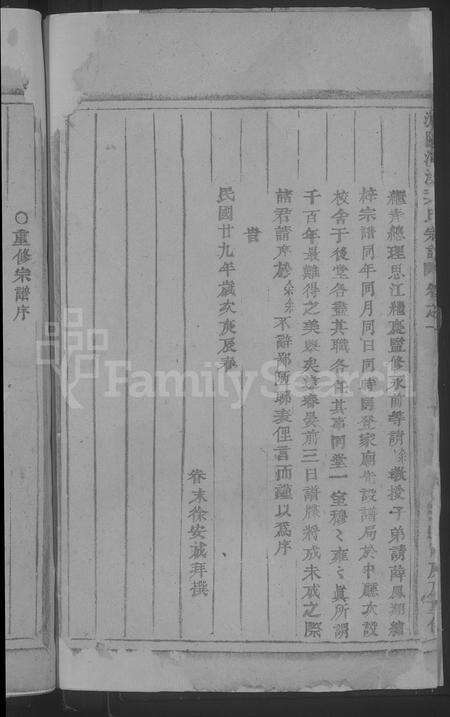 繼青總理思江繼處監修永前等請徐敎授子弟請薛鳳翔繡
梓宗譜同年同月同日同時同登家廟先設譜局於中廳次設
校舍于後堂各盡其職各任其事同堂一室穆〻雍〻眞所謂
千百年最難得之美舉矣 春 前三日譜牒將成未成之際
諸君請序於徐徐不辭鄙陋聊表俚言而謹以爲序
旹
民國廿九年歲次庚辰春
眷末徐安成拜撰
○重修宗譜序
FamilySearch